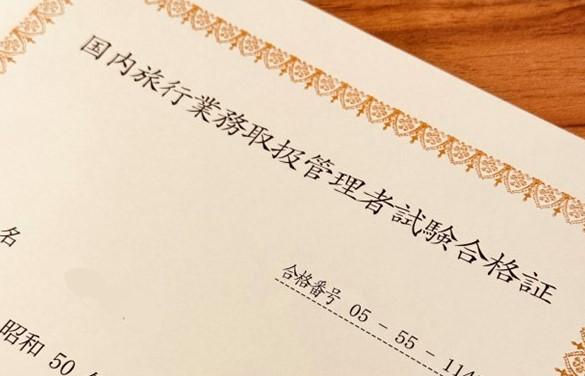 国内旅行業務取扱管理者試験合格証
合格番号 05 - 55 - 114
名
昭和 50